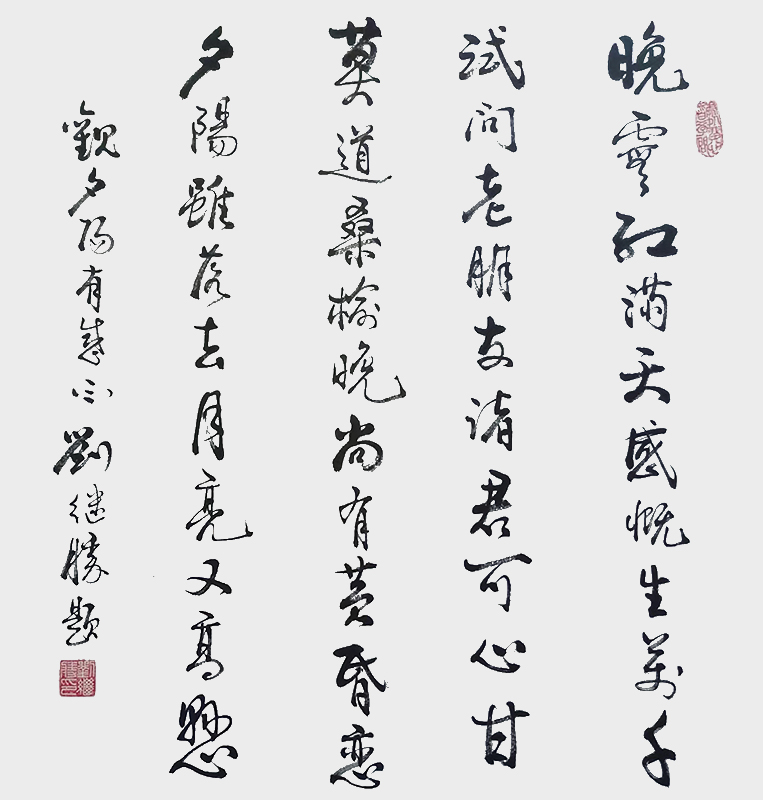 晚霞红满天感慨生万千
试问老朋友诸君可心甘
莫道桑榆晚尚有黄昏恋
夕陽雖落去月亮又高懸
觀夕阳有感
劉继勝题